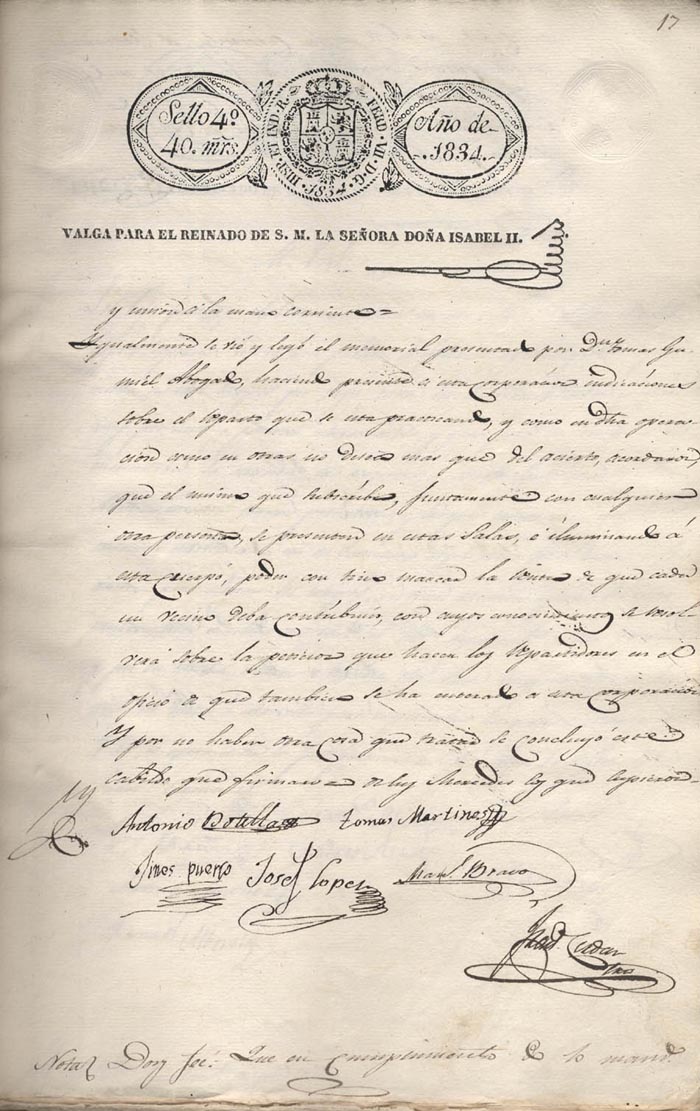 17
Sello 4º
40. mrs.
HISP. ET IND. R. FERD. VII. D. G.
1834.
Año de
1834.
VALGA PARA EL REINADO DE S. M. LA SEÑORA DOÑA ISABEL II.
y a la mano corriente =
Ygualmente se vió y leyó el memorial presentado por Dn. Tomas Gu-
miel Abogado, haciendo presente a esta corporacion indicaciones
sobre el reparto que se esta practicando, y como en dha opera-
cion como en otras no desea mas que del acierto, acordaron
que el mismo que subscribe, juntamente con cualquiera
otra persona, se presente en estas Salas, é iluminando á
este cuerpo, poder con tino marcar la de que cada
un vecino deba contribuir, con cuyos conocimientos se resol-
verá sobre la peticion que hacen los repartidores en el
oficio de que tambien se ha enterado a esta corporacion
Y por no haber otra cosa que tratar se concluyó este
Cabildo que firmaron de sus Mercedes los que supieron
Antonio Botella Tomas Martinez
Jines puerto José Lopez Manl. Bravo
Nota Doy feé: Que en cumplimiento de lo mand.